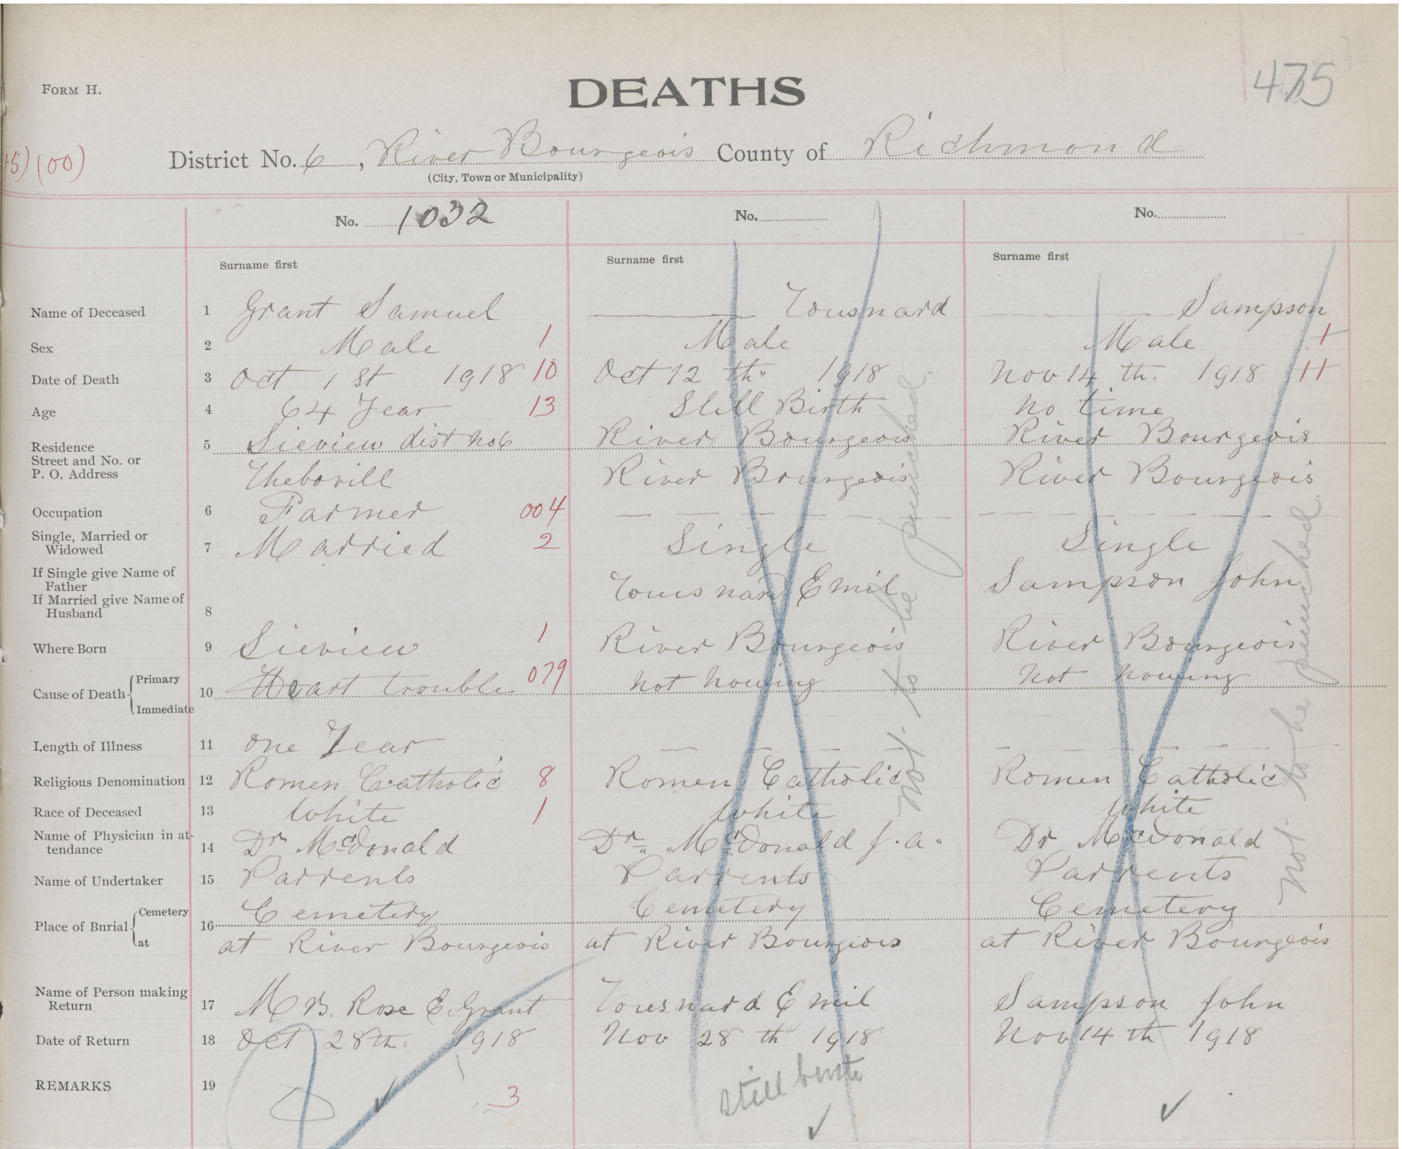 FORM H.
DEATHS
475
(00)
District No. 6, River Bourgeois County of Richmond
(City, Town or Municipality)
No. 1032 No. No.
Surname first Surname first Surname first
Name of Deceased 1 Grant Samuel Tousnard Sampson
Sex 2 Male 1 Male Male 1
Date of Death 3 Oct 1st 1918 10 Oct 12 th 1918 Nov 14 th. 1918 11
Age 4 64 Year 13 Still Birth No time
Residence 5 Sieview dist No 6 River Bourgeois River Bourgeois
Street and No. or
P. O. Address Thebovill River Bourgeois River Bourgeois
Occupation 6 Farmer 004
Single, Married or
Widowed 7 Married 2 Single Single
If Single give Name of
Father Tousnard Emil Sampson John
If Married give Name of
Husband 8
Where Born 9 Sieview 1 River Bourgeois River Bourgeois
Cause of Death Primary 10 Heart trouble 079 not nowing Not nowing
Immediate
Length of Illness 11 One Year
Religious Denomination 12 Romen Catholic 8 Romen Catholic Romen Catholic
Race of Deceased 13 White 1 White White
Name of Physician in at-
tendance 14 Dr McDonald Dr McDonald J. A. Dr McDonald
Name of Undertaker 15 Parrents Parrents Parrents
Place of Burial Cemetery 16 Cemetery Cemetery Cemetery
at at River Bourgeois at River Bourgeois at River Bourgeois
Name of Person making
Return 17 Rose E. Grant Tousnard Emil Sampson John
Date of Return 18 Oct 28th. 1918 Nov 28 th 1918 Nov 14 th 1918
REMARKS 19 3 still
Not to be punched.
Not to be punched